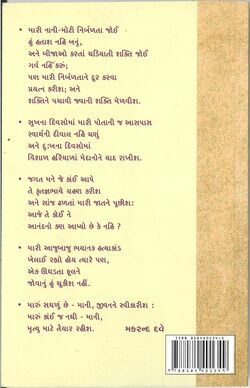 • મારી નાની-મોટી નિર્બળતા જોઈ
હું હતાશ નહિ બનું,
અને બીજાઓ કરતાં ચડિયાતી શક્તિ જોઈ
ગર્વ નહિ કરું;
પણ મારી નિર્બળતાને દૂર કરવા
પ્રયત્ન કરીશ; અને
શક્તિને પચાવી જવાની શક્તિ મેળવીશ.
• સુખના દિવસોમાં મારી પોતાની જ આસપાસ
સ્વાર્થની દીવાલ નહિ ચણું
અને દુ:ખના દિવસોમાં
વિશાળ હરિયાળાં મેદાનોને યાદ રાખીશ.
• જગત મને જે કાંઈ આપે
તે કૃતજ્ઞભાવે ગ્રહણ કરીશ
અને સાંજ ઢળતાં મારી જાતને પૂછીશ:
આજે તેં કોઈ ને
આનંદનો કણ આપ્યો છે કે નહિ ?
• મારી આજુબાજુ ભયાનક હત્યાકાંડ
ખેલાઈ રહ્યો હોય ત્યારે પણ,
એક ઊઘડતા ફૂલને
જોવાનું હું ચૂકીશ નહીં.
• મારું સઘળું છે - માની, જીવનને સ્વીકારીશ :
મારું કાંઈ જ નથી - માની,
મૃત્યુ માટે તૈયાર રહીશ.
મકરન્દ દવે